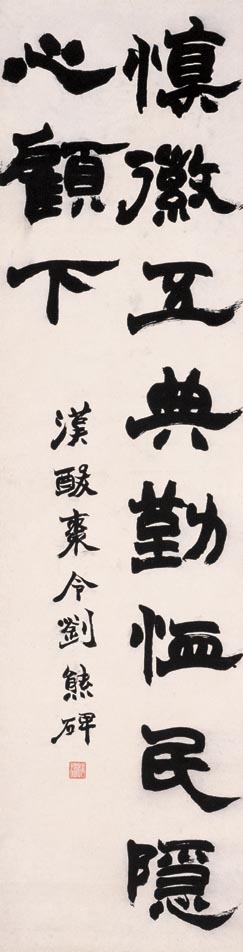 慎徽五典勤恤民隱
心顧下
漢酸棗令劉熊碑